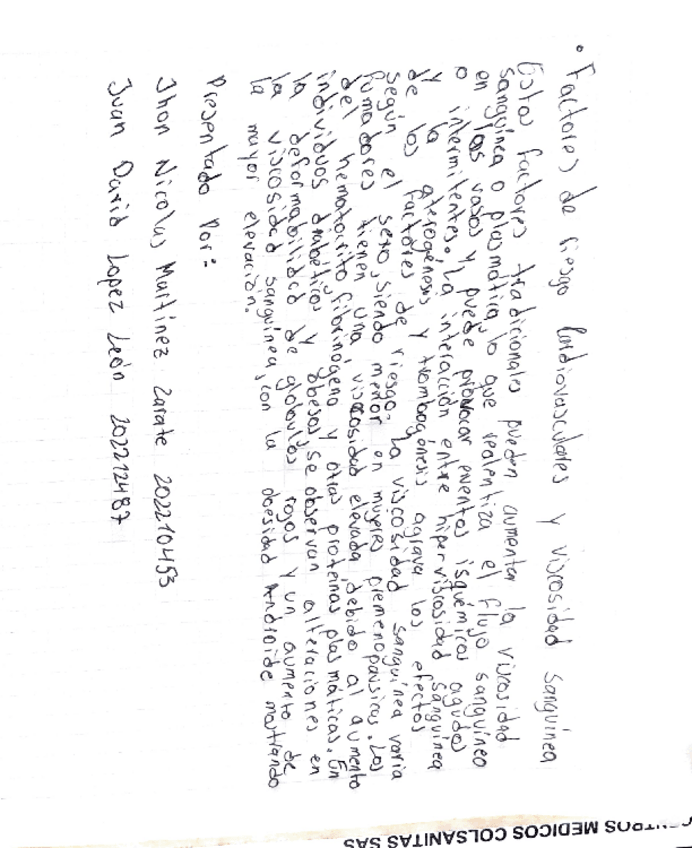 • Factores de riesgo Cardiovasculares y viscosidad sanguínea
Estos factores tradicionales pueden aumentar la viscosidad
sanguínea o plasmática, lo que realentiza el flujo sanguíneo
en los vasos y puede provocar eventos isquémicos agudos
o intermitentes. La interacción entre hiperviscosidad sanguínea
y la aterogénesis y trombogénesis agrava los efectos
de los factores de riesgo. La viscosidad sanguínea varia
según el sexo, siendo menor en mujeres premenopausicas. Los
fumadores tienen una viscosidad elevada debido al aumento
del hematocrito, fibrinógeno y otras proteínas plasmáticas. En
individuos diabéticos y obesos, se observan alteraciones en
la deformabilidad de globulos rojos y un aumento de
la viscosidad sanguínea, con la obesidad Androide mostrando
la mayor elevación.
Presentado Por:
Jhon Nicolas Martínez Zarate 202210453
Juan David Lopez León 202212487
CENTROS MEDICOS COLSANITAS SAS